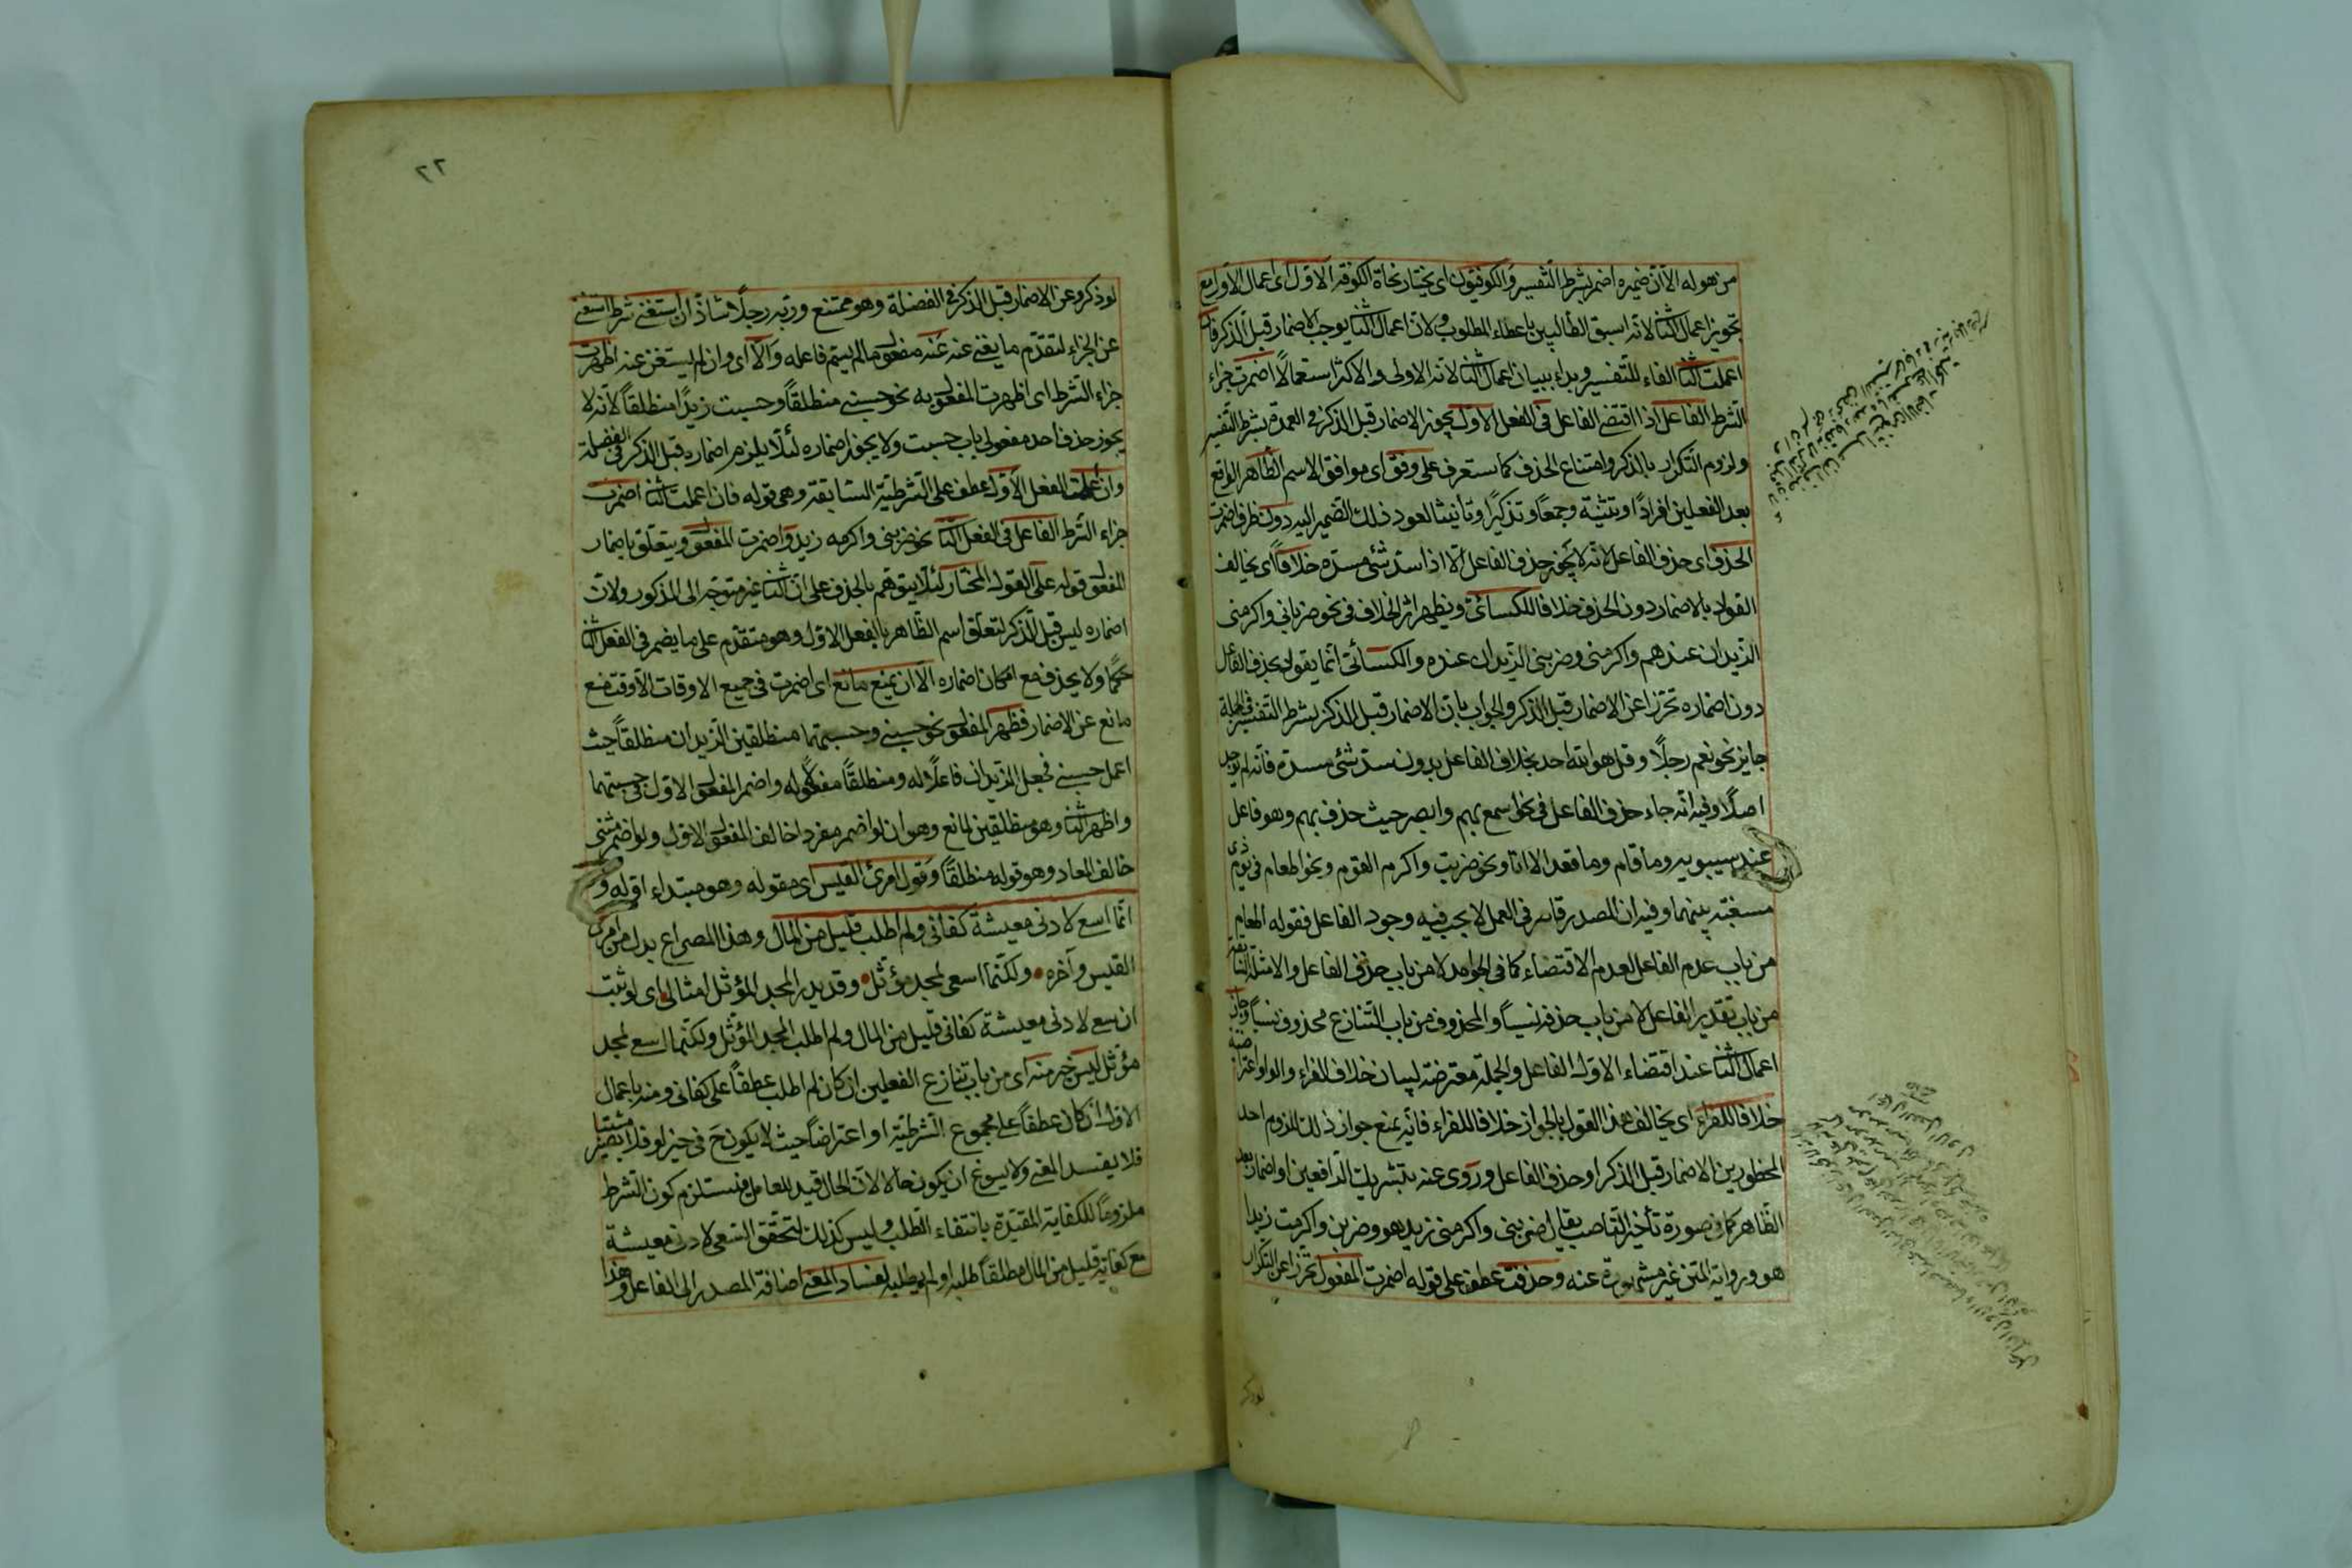 من هو له الا ان ضميره اضمر بشرط التفسير والكوفيون اى يختار نحاة الكوفة الاول اى اعمال الاول مع
تجويز اعمال الثانى لانه اسبق الطالبين باعطاء المطلوب ولان اعمال الثانى يوجب الاضمار قبل الذكر فان
اعملت الثانى الفاء للتفسير وبداء ببيان اعمال الثانى لانه الاولى والاكثر استعمالًا اضمرت جزاء
الشرط الفاعل اذا اقتضى الفاعل فى الفعل الاول لجواز الاضمار قبل الذكر فى العمدة بشرط التفسير
ولزوم التكرار بالذكر وامتناع الحذف كما ستعرف على وفق اى موافق الاسم الظاهر الواقع
بعد الفعلين افرادًا وتثنية وجمعًا وتذكيرًا وتأنيثا لعود ذلك الضمير اليه دون ظرف اضمرت
الحذف اى حذف الفاعل لانه لا يجوز حذف الفاعل الا اذا سد شئ مسده خلافًا اى يخالف
القول بالاضمار دون الحذف خلافا للكسائى ويظهر اثر الخلاف فى نحو ضربانى واكرمنى
الزيدان عندهم واكرمنى وضربنى الزيدان عنده والكسائى انما يقول بحذف الفاعل
دون اضماره تحرزا عن الاضمار قبل الذكر والجواب بان الاضمار قبل الذكر بشرط التفسير فى الجملة
جايز نحو نعم رجلًا وقل هو الله احد بخلاف الفاعل بدون سد شئ مسده فانه لم يوجد
اصلًا وفيه انه جاء حذف الفاعل فى نحو اسمع بهم وابصر حيث حذف بهم وهو فاعل
عند سيبويه وما قام وما قعد الا انا ونحو ضربت واكرم القوم ونحو اطعام فى يوم ذى
مسغبة يتيما وفيه ان المصدر قاصر فى العمل لا يجب فيه وجود الفاعل فقوله اطعام
من باب عدم الفاعل لعدم الاقتضاء كما فى الجوامد لا من باب حذف الفاعل والامثلة الباقية
من باب تقدير الفاعل لا من باب حذفه نسيًا والمحذوف من باب التنازع محذوف نسيًا وجاز
اعمال الثانى عند اقتضاء الاول الفاعل والجملة معترضة لبيان خلاف الفراء والواو اعتراضية
خلافا للفراء اى يخالف هذا القول بالجواز خلافا للفراء فانه يمنع جواز ذلك للزوم احد
المحظورين الاضمار قبل الذكر او حذف الفاعل وروى عنه تشريك الرافعين او اضمار بعد
الظاهر كما فى صورة تأخير الناصب يقال ضربنى واكرمنى زيد هو وضربنى واكرمت زيدا
هو ورواية المتن غير مشهورة عنه وحذفت عطف على قوله اضمرت المفعول تحرزا عن التكرار
٢٢
لو ذكر وعن الاضمار قبل الذكر فى الفضلة وهو ممتنع وربه رجلًا شاذ ان استغنى شرط استغنى
عن الجزاء لتقدم ما يغنى عنه عنه مفعول ما لم يسم فاعله والا اى وان لم يستغن عنه اظهرت
جزاء الشرط اى اظهرت المفعول به نحو حسبنى منطلقًا وحسبت زيدًا منطلقًا لانه لا
يجوز حذف احد مفعولى باب حسبت ولا يجوز اضماره لئلا يلزم اضماره قبل الذكر فى الفضلة
وان اعملت الفعل الاول عطف على الشرطية السابقة وهى قوله فان اعملت الثانى اضمرت
جزاء الشرط الفاعل فى الفعل الثانى نحو ضربنى واكرمه زيد واضمرت المفعول ويتعلق باضمار
المفعول قوله على القول المختار لئلا يتوهم بالحذف على ان الثانى غير متوجه الى المذكور ولان
اضماره ليس قبل الذكر لتعلق اسم الظاهر بالفعل الاول وهو متقدم على ما يضمر فى الفعل الثانى
حكمًا ولا يحذف مع امكان اضماره الا ان يمنع مانع اى اضمرت فى جميع الاوقات الا وقت منع
مانع عن الاضمار فتظهر المفعول نحو حسبنى وحسبتهما منطلقين الزيدان منطلقًا حيث
اعمل حسبنى فجعل الزيدان فاعلًا له ومنطلقًا مفعولًا له واضمر المفعول الاول فى حسبتهما
واظهر الثانى وهو منطلقين لمانع وهو ان لو اضمر مفردا خالف المفعول الاول ولو اضمر مثنى
خالف المعاد وهو قوله منطلقًا وقول امرئ القيس اى مقوله وهو مبتداء اوله و
انما اسعى لادنى معيشة كفانى ولم اطلب قليل من المال وهذا المصراع بدل من امرئ
القيس وآخره ولكنما اسعى لمجد مؤثل وقد يدرك المجد المؤثل امثالى اى لو ثبت
ان سعى لادنى معيشة كفانى قليل من المال ولم اطلب المجد المؤثل ولكنما اسعى لمجد
مؤثل ليس خبر منه اى من باب تنازع الفعلين ان كان لم اطلب عطفًا على كفانى ومنه باعمال
الاول ان كان عطفًا على مجموع الشرطية او اعتراضًا حيث لا يكون ح فى حيز لو فلا يصير مثبتا
فلا يفسد المعنى ولا يسوغ ان يكون حالا لان الحال قيد للعامل فيستلزم كون الشرط
ملزومًا للكفاية المقيدة بانتفاء الطلب وليس كذلك لتحقق السعى لادنى معيشة
مع كفاية قليل من المال مطلقًا طلبه او لم يطلبه لفساد المعنى اضافة المصدر الى الفاعل وهذا